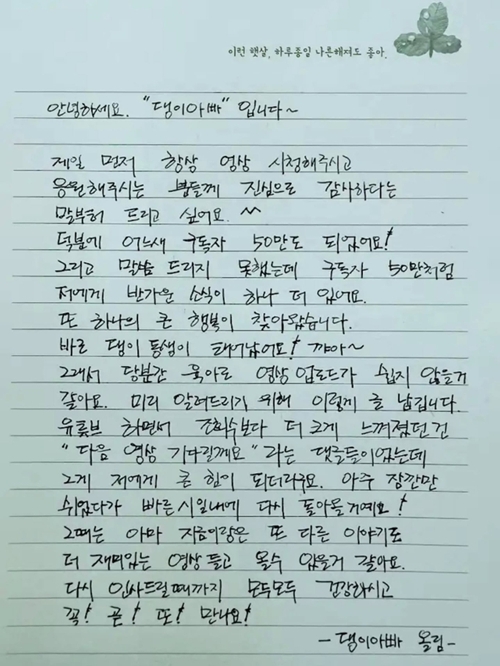 이런 햇살, 하루종일 나른해져도 좋아.
안녕하세요. "댕이아빠" 입니다~
제일 먼저 항상 영상 시청해주시고
응원해주시는 분들께 진심으로 감사하다는
말부터 드리고 싶어요. ^^
덕분에 어느새 구독자 50만도 되었어요!
그리고 말씀 드리지 못했는데 구독자 50만처럼
저에게 반가운 소식이 하나 더 있어요.
또 하나의 큰 행복이 찾아왔습니다.
바로 댕이 동생이 태어났어요! 꺄아~
그래서 당분간 육아로 영상 업로드가 쉽지 않을거
같아요. 미리 알려드리기 위해 이렇게 글 남깁니다.
유튜브 하면서 조회수보다 더 크게 느껴졌던건
"다음 영상 기다릴께요" 라는 댓글들이었는데
그게 저에게 큰 힘이 되더라구요. 아주 잠깐만
쉬었다가 빠른시일내에 다시 돌아올게예요!
그때는 아마 지금이랑은 또 다른 이야기로
더 재미있는 영상 들고 올수 있을거 같아요.
다시 인사드릴때까지 모두모두 건강하시고
꼭! 곧! 또! 만나요!
- 댕이아빠 올림 -